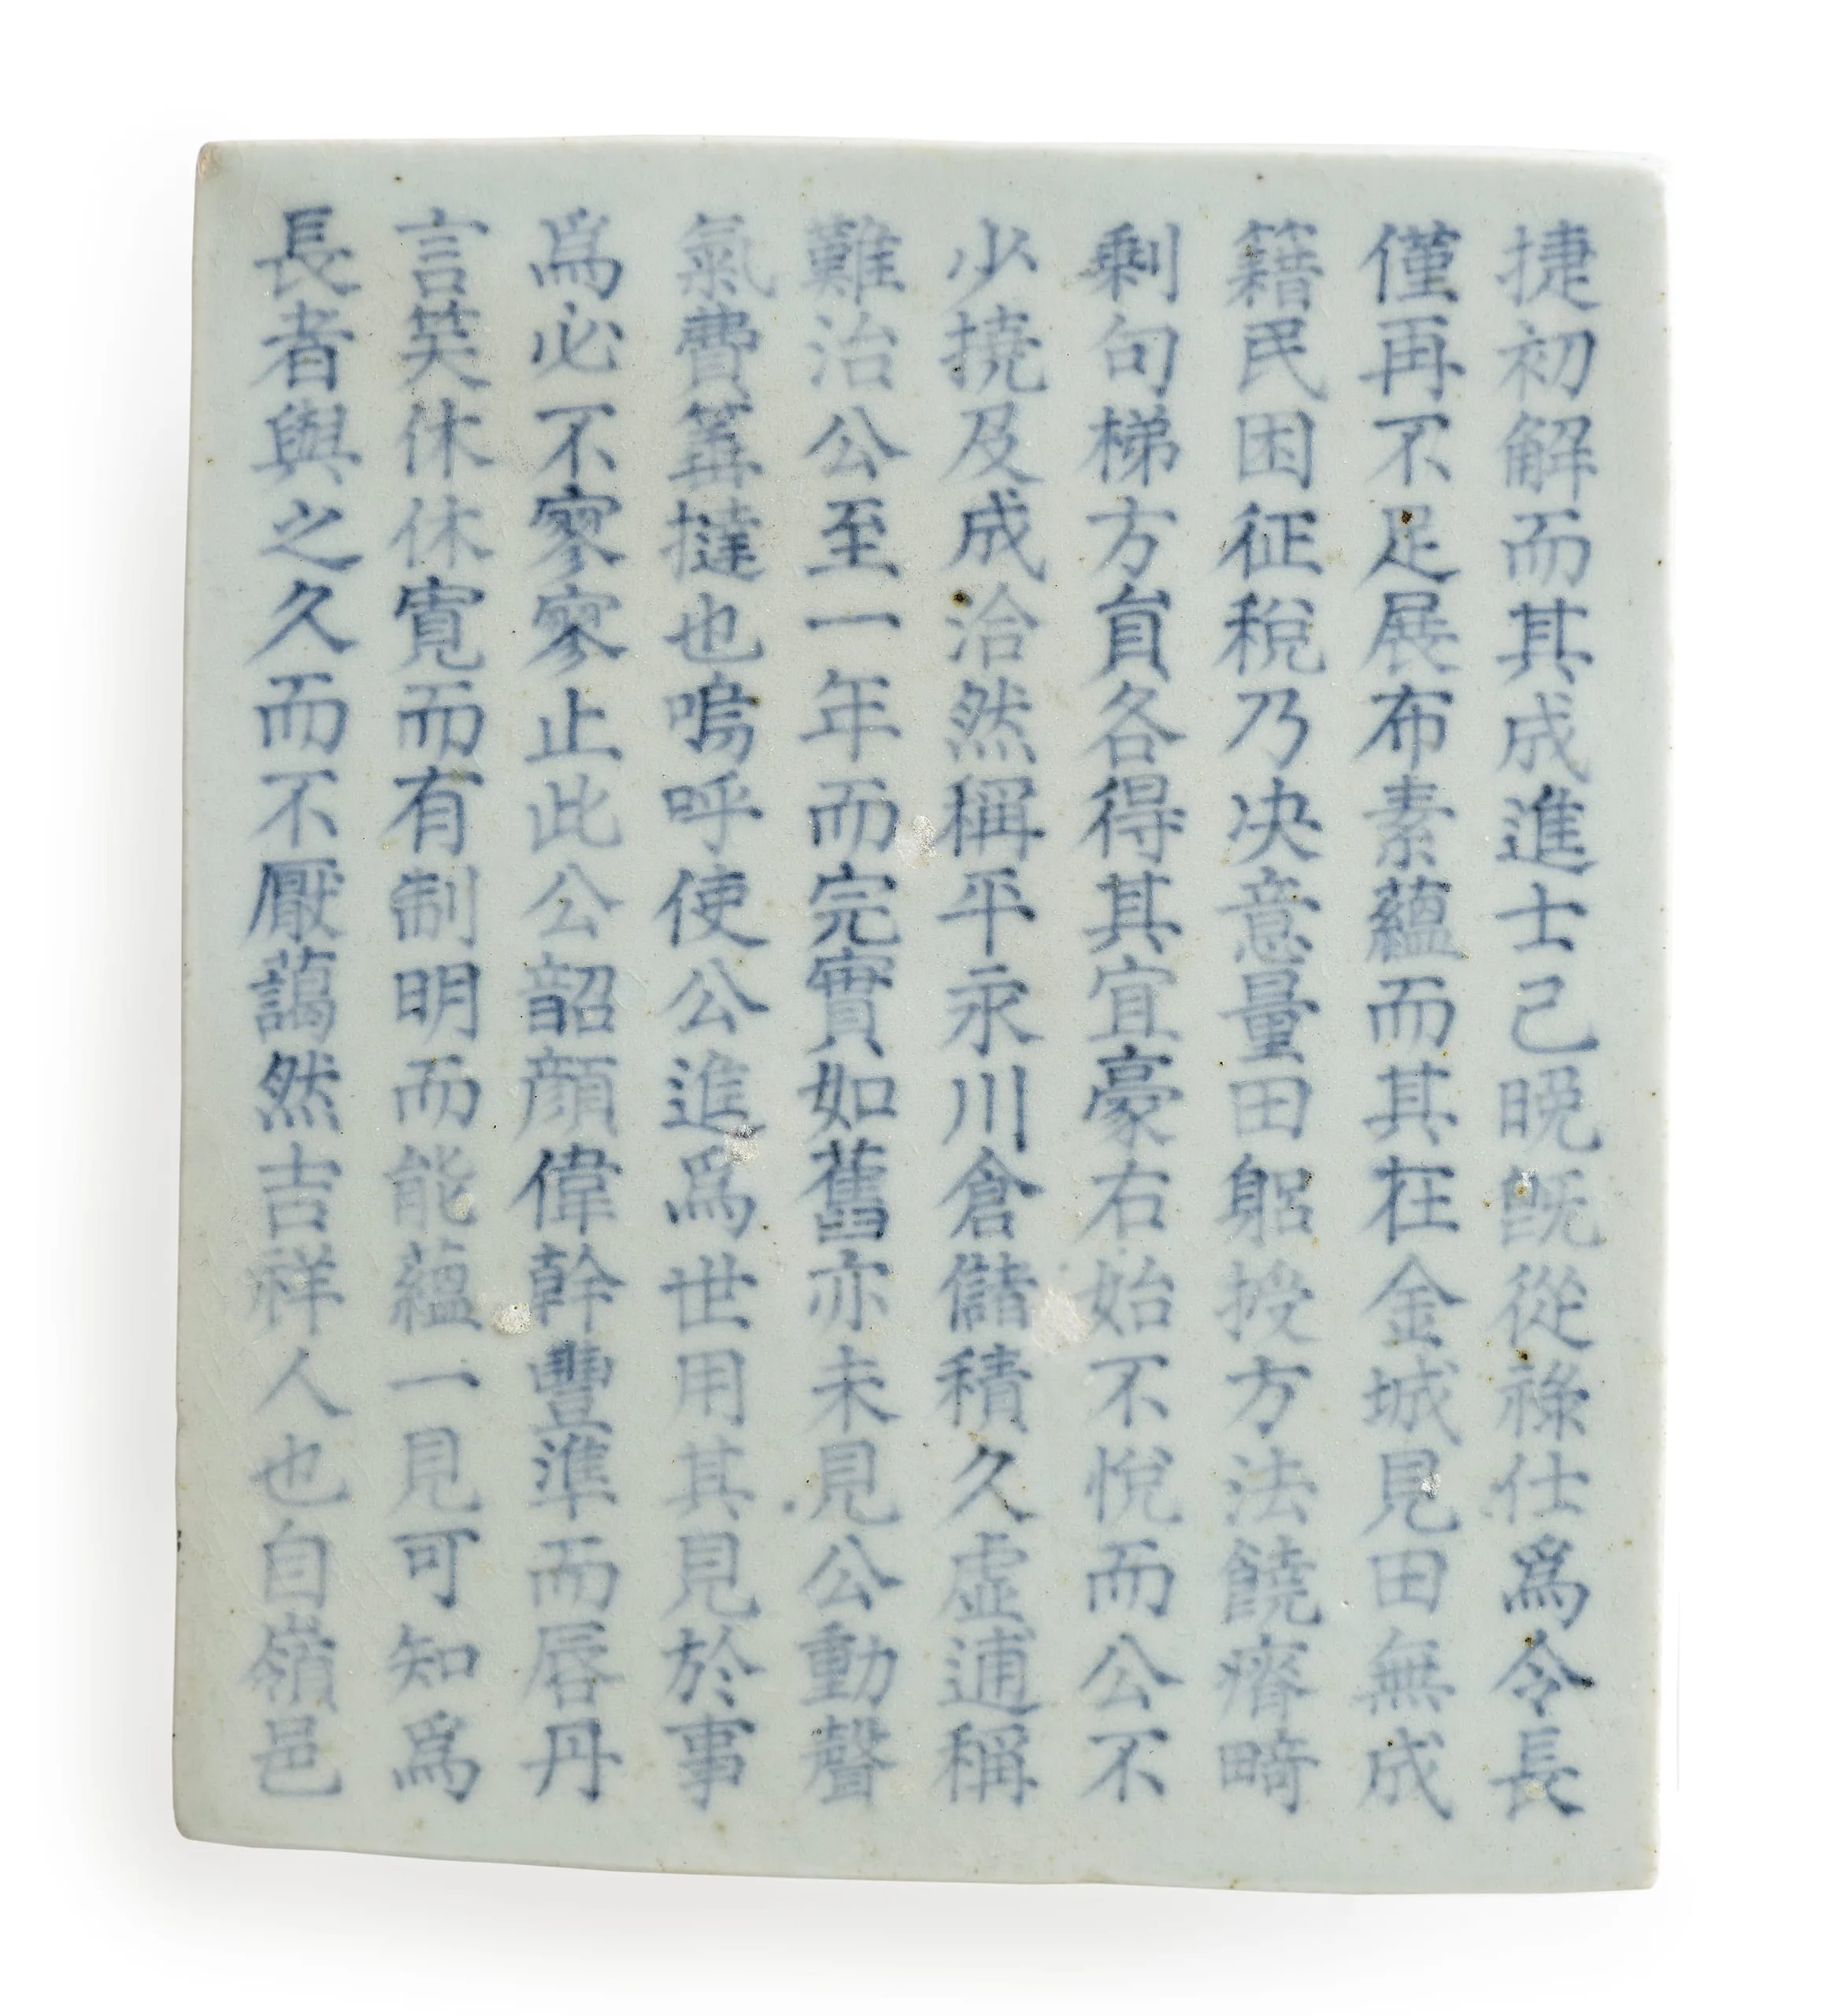 捷初解而其成進士己晚旣從祿仕爲令長
僅再不足展布素蘊而其在金城見田無成
籍民困征稅乃决意量田躬授方法饒瘠畸
剩句梯方負各得其宜豪右始不悅而公不
少撓及成洽然稱平永川倉儲積久虛逋稱
難治公至一年而完實如舊亦未見公動聲
氣費箠撻也嗚呼使公進爲世用其見於事
爲必不寥寥止此公韶顔偉幹豐準而唇丹
言笑休休寬而有制明而能蘊一見可知爲
長者與之久而不厭藹然吉祥人也自嶺邑